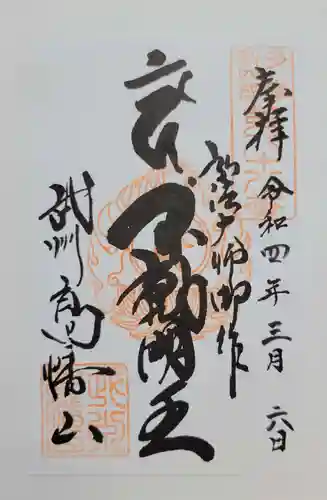 奉拝 令和四年三月六日
弘法大師御作
交通不動明王
武州高幡山